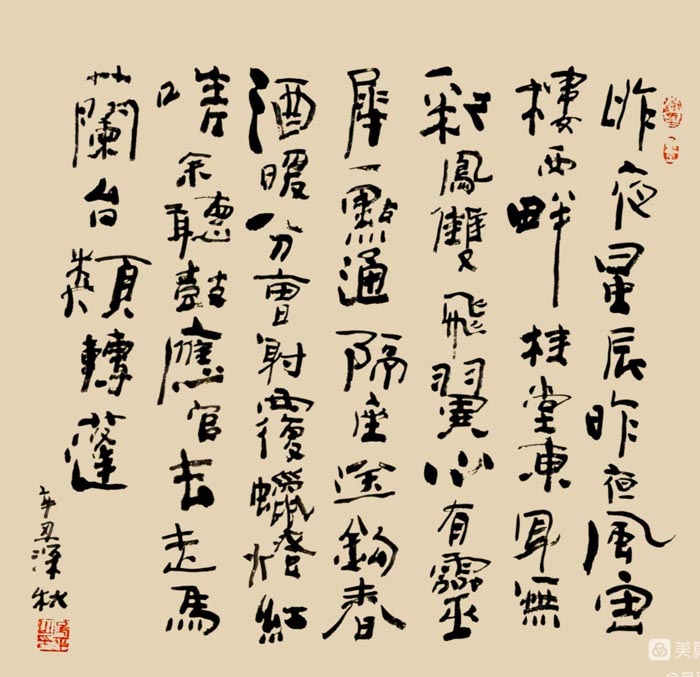 昨夜星辰昨夜風畫
樓西畔桂堂東身無
彩鳳雙飛翼心有靈
犀一點通隔座送鈎春
酒暖分曹射覆蠟燈紅
嗟余聽鼓應官去走馬
蘭台類轉蓬
辛丑深秋
美篇